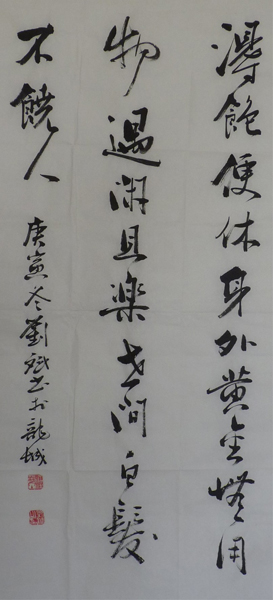 得飽便休身外黄金無用
物過閑且樂世间白髮
不饒人
庚寅冬劉斌書於龍城